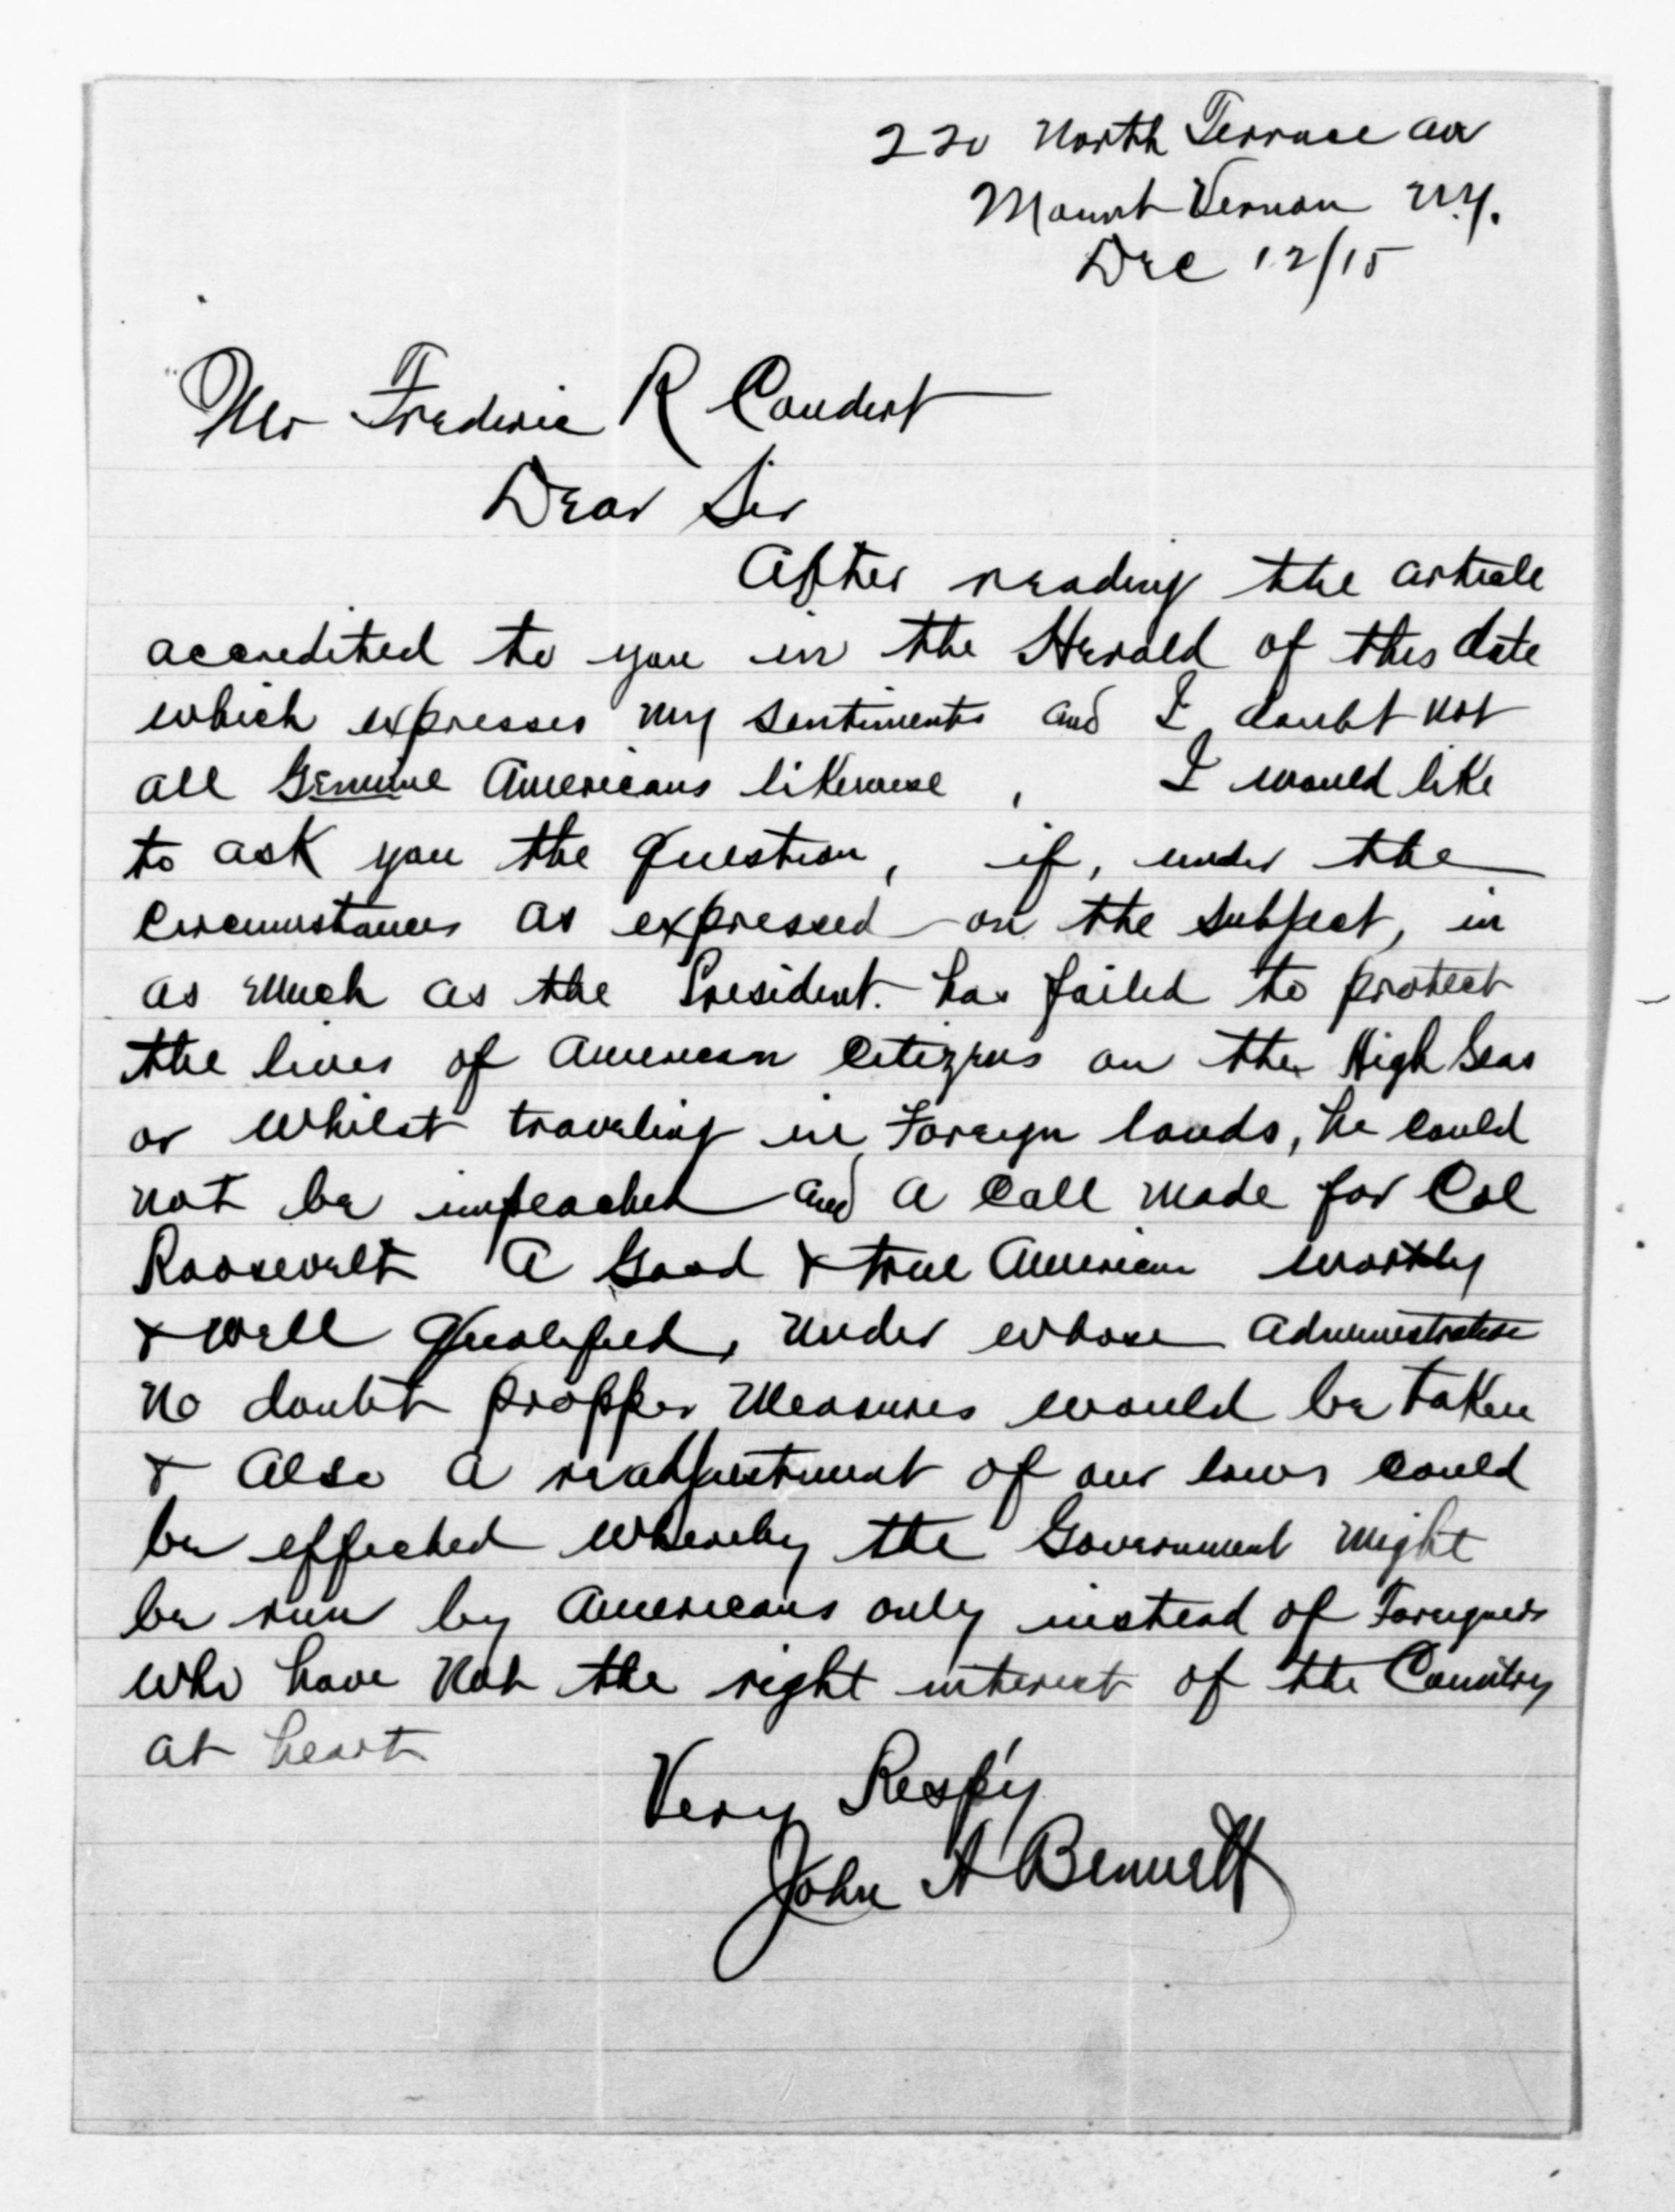 220 North Terrace av
Mount Vernon N.Y.
Dec 12/15
Mr Frederic R Coudert
Dear Sir
After reading the article
accredited to you in the Herald of this date
which expresses my sentiments and I doubt not
all Genuine Americans likewise , I would like
to ask you the question, if, under the
Circumstances as expressed on the subject, in
as much as the President has failed to protect
the lives of American Citizens on the High Seas
or whilst traveling in Foreign lands, he could
not be impeached and a Call made for Col
Roosevelt A Good & true American worthy
& well Qualified, under whose administration
no doubt propper Measures would be taken
& Also a readjustment of our laws could
be effected whereby the Government might
be run by Americans only instead of Foreigners
who have not the right interest of the Country
at heart
Very Resp'y
John A Bennett